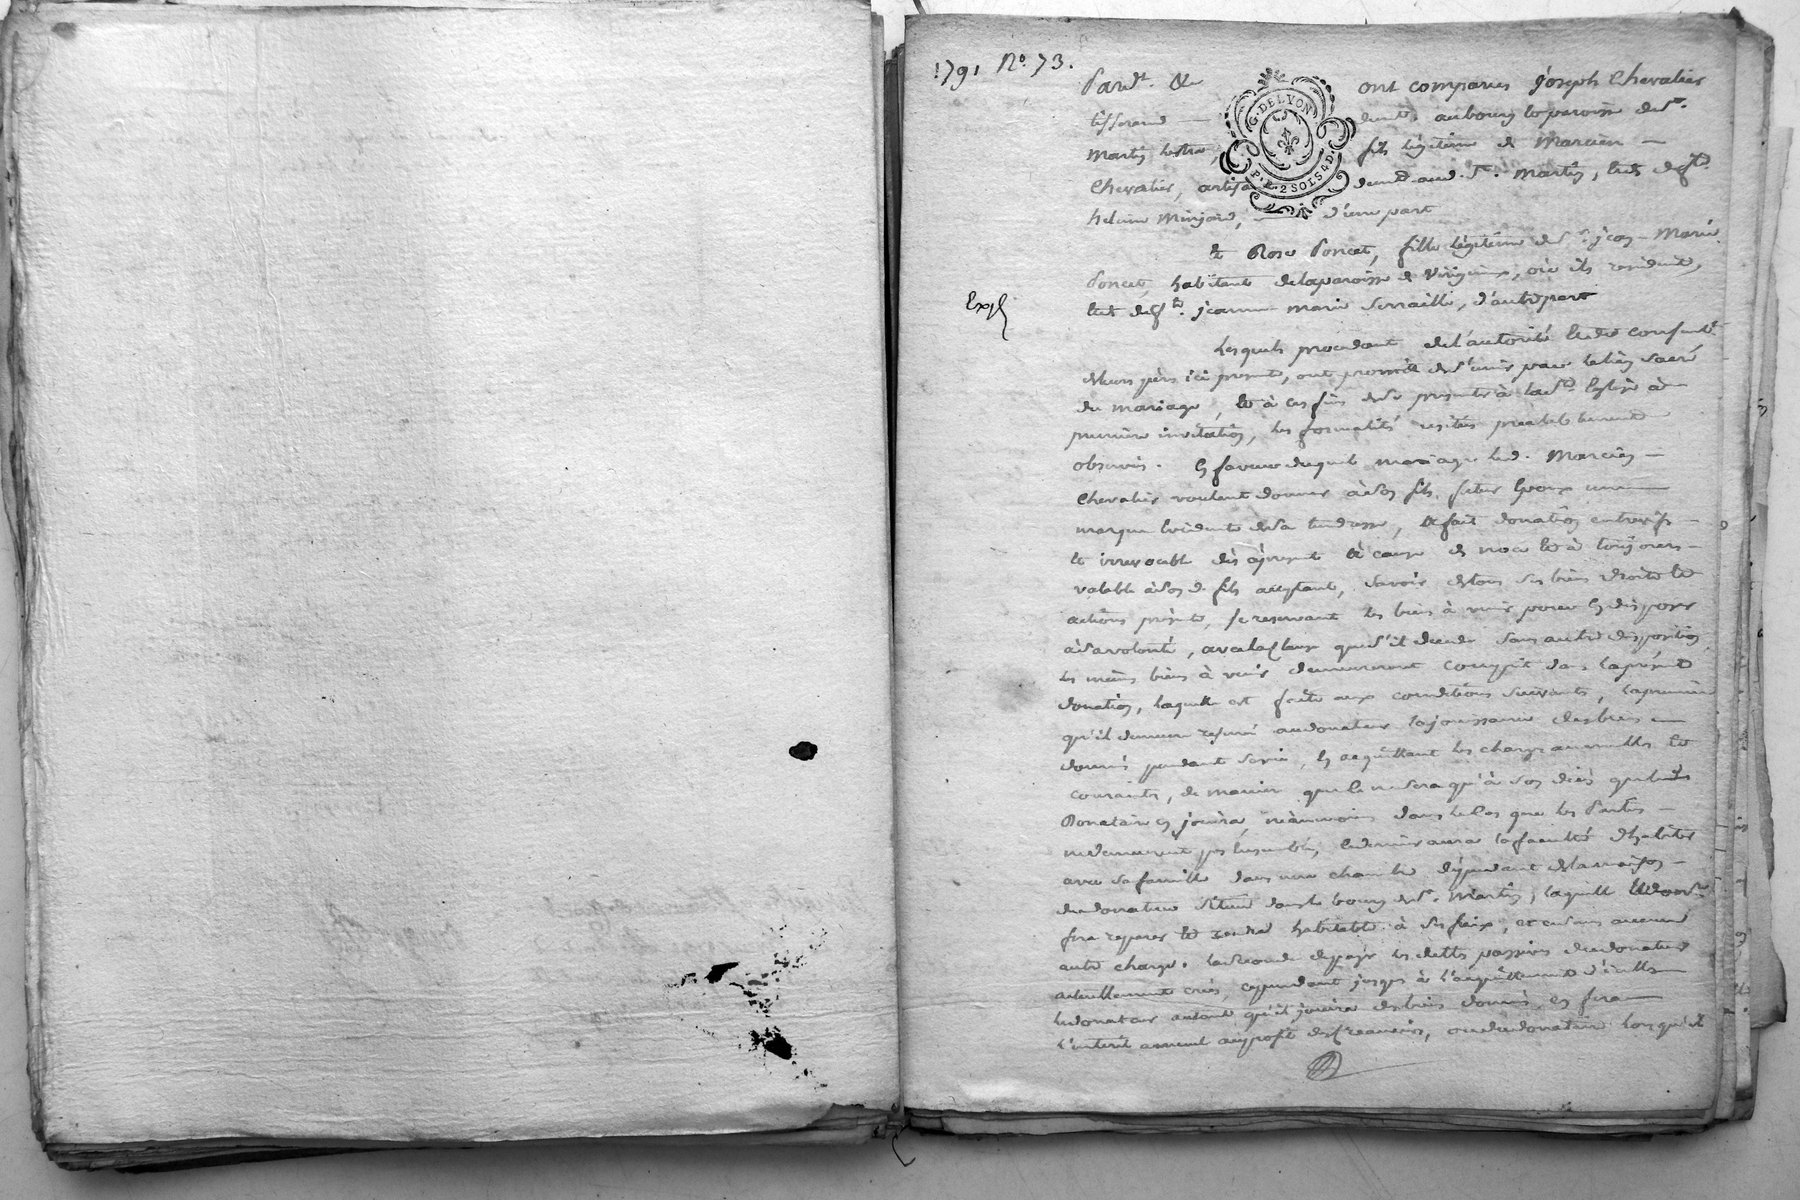 1791 No. 73.
Pard.t &
G. DE LYON
P. P. 2 SOLS 4 D.
ont comparus joseph Chevalier
tisserand demt. au bourg et paroisse de St.
Martin lestra, fils légitime de Marcien
Chevalier, artisan demt. aud. St. Martin, et de
helaine Minjard, d'une part
Et Rose Poncet, fille légitime de Sr. jean-Marie
Poncet, habitant de la paroisse de Virigneux, où ils resident,
Exp.
et de jeanne marie Serraille, d'autre part
Lesquels procedant de l'autorité et du consentt.
de leurs pères ici présents, ont promis de s'unir par le lien sacré
du mariage, et à ces fins de se presenter à la Ste. Eglise à
première invitation, les formalités usitées prealablement
observées. En faveur duquel mariage led. Marcien
Chevalier voulant donner à son fils, futur Epoux une
marque évidente de sa tendresse, a fait donation entrevifs
et irrevocable dès àprésent à cause de noce et à toujours
valable à son d. fils acceptant, savoir de tous ses biens droits et
actions présents, se reservant les biens à venir pour en disposer
à sa volonté, avec la clause que s'il decede sans autre disposition
les mêmes biens à venir demeureront compris dans la présente
donation, laquelle est faite aux conditions suivantes, la première
qu'il demeure reservé au donateur la jouissance des biens
donnés pendant sa vie, en acquittant les charges annuelles et
courantes, de manière que ce ne sera qu'à son décès que led.
Donataire en jouira, néanmoins dans le cas que les Parties
ne demeurent pas ensembles, le dernier aura la faculté d'habiter
avec sa famille dans une chambre dépendant de la maison
du donateur située dans le bourg de St. Martin, laquelle
fera reparer et rendre habitable à ses frais, et ce sans aucune
autre charge. la seconde de payer les dettes passives du donateur
actuellement crées, cependant jusques à l'acquittement d'icelles
le donateur autant qu'il jouira des biens donnés en fera
l'interêt annuel au profit des Creanciers, ou du donataire lorsqu'il